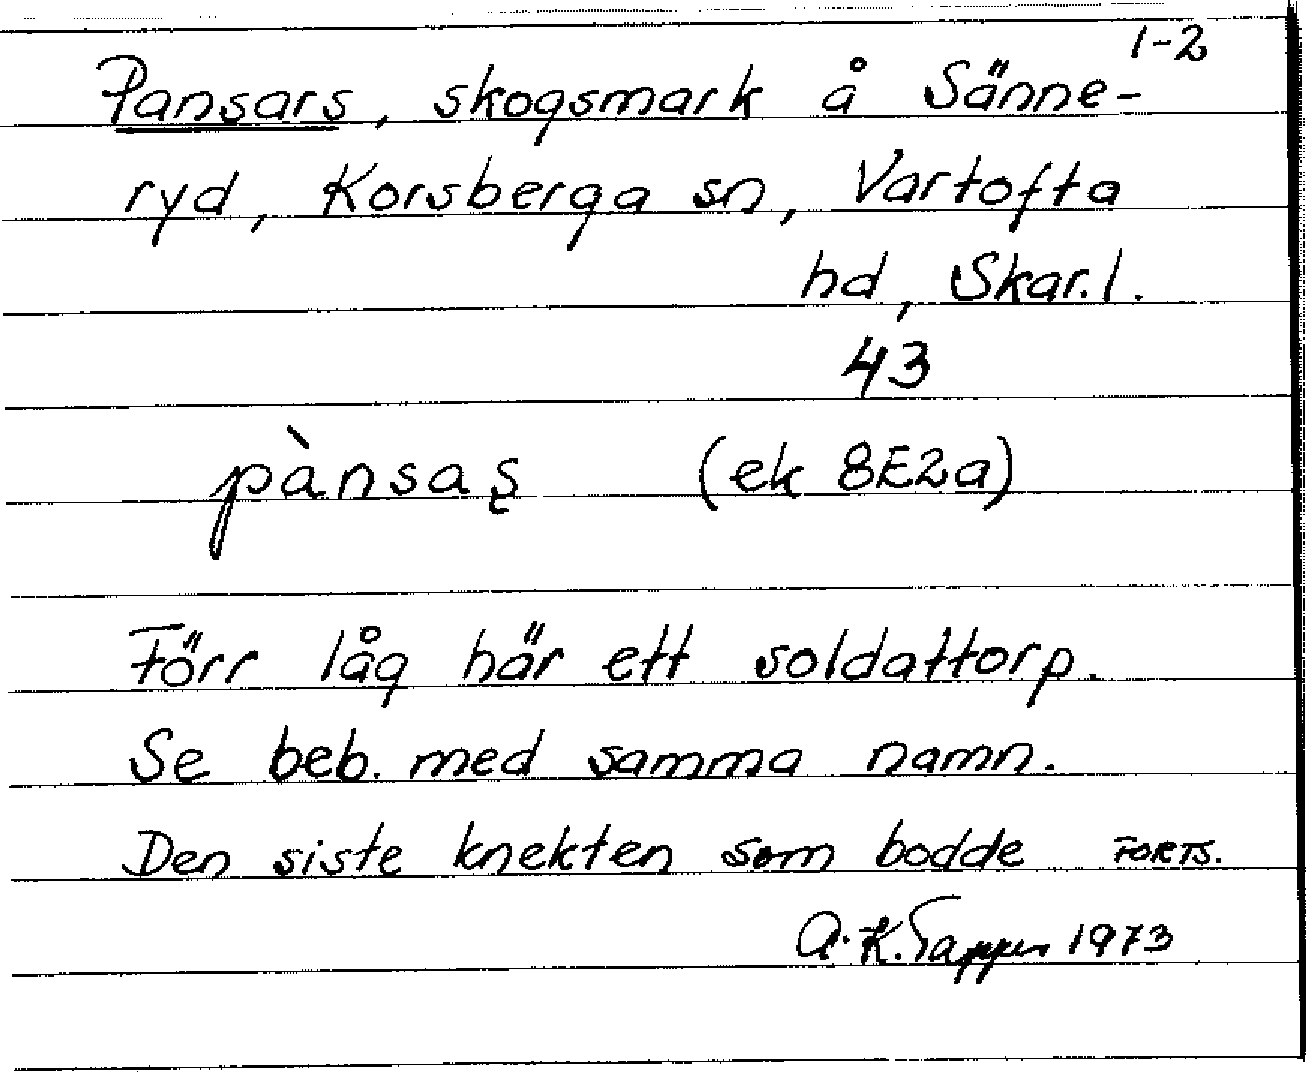 1-2
Pansars, skogsmark å Sänne-
ryd, Korsberga sn, Vartofta
hd, Skar. l.
43
pànsaş (ek 8E2a)
Förr låg här ett soldattorp.
Se beb. med samma namn.
Den siste knekten som bodde FORTS.
A.K. Tapper 1973